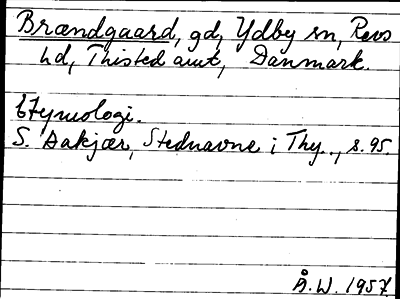 Brændgaard, gd, Ydby sn, Revs
hd, Thisted amt, Danmark.
Etymologi.
S. Aakjær, Stednavne i Thy., s. 95.
Å.W. 1957